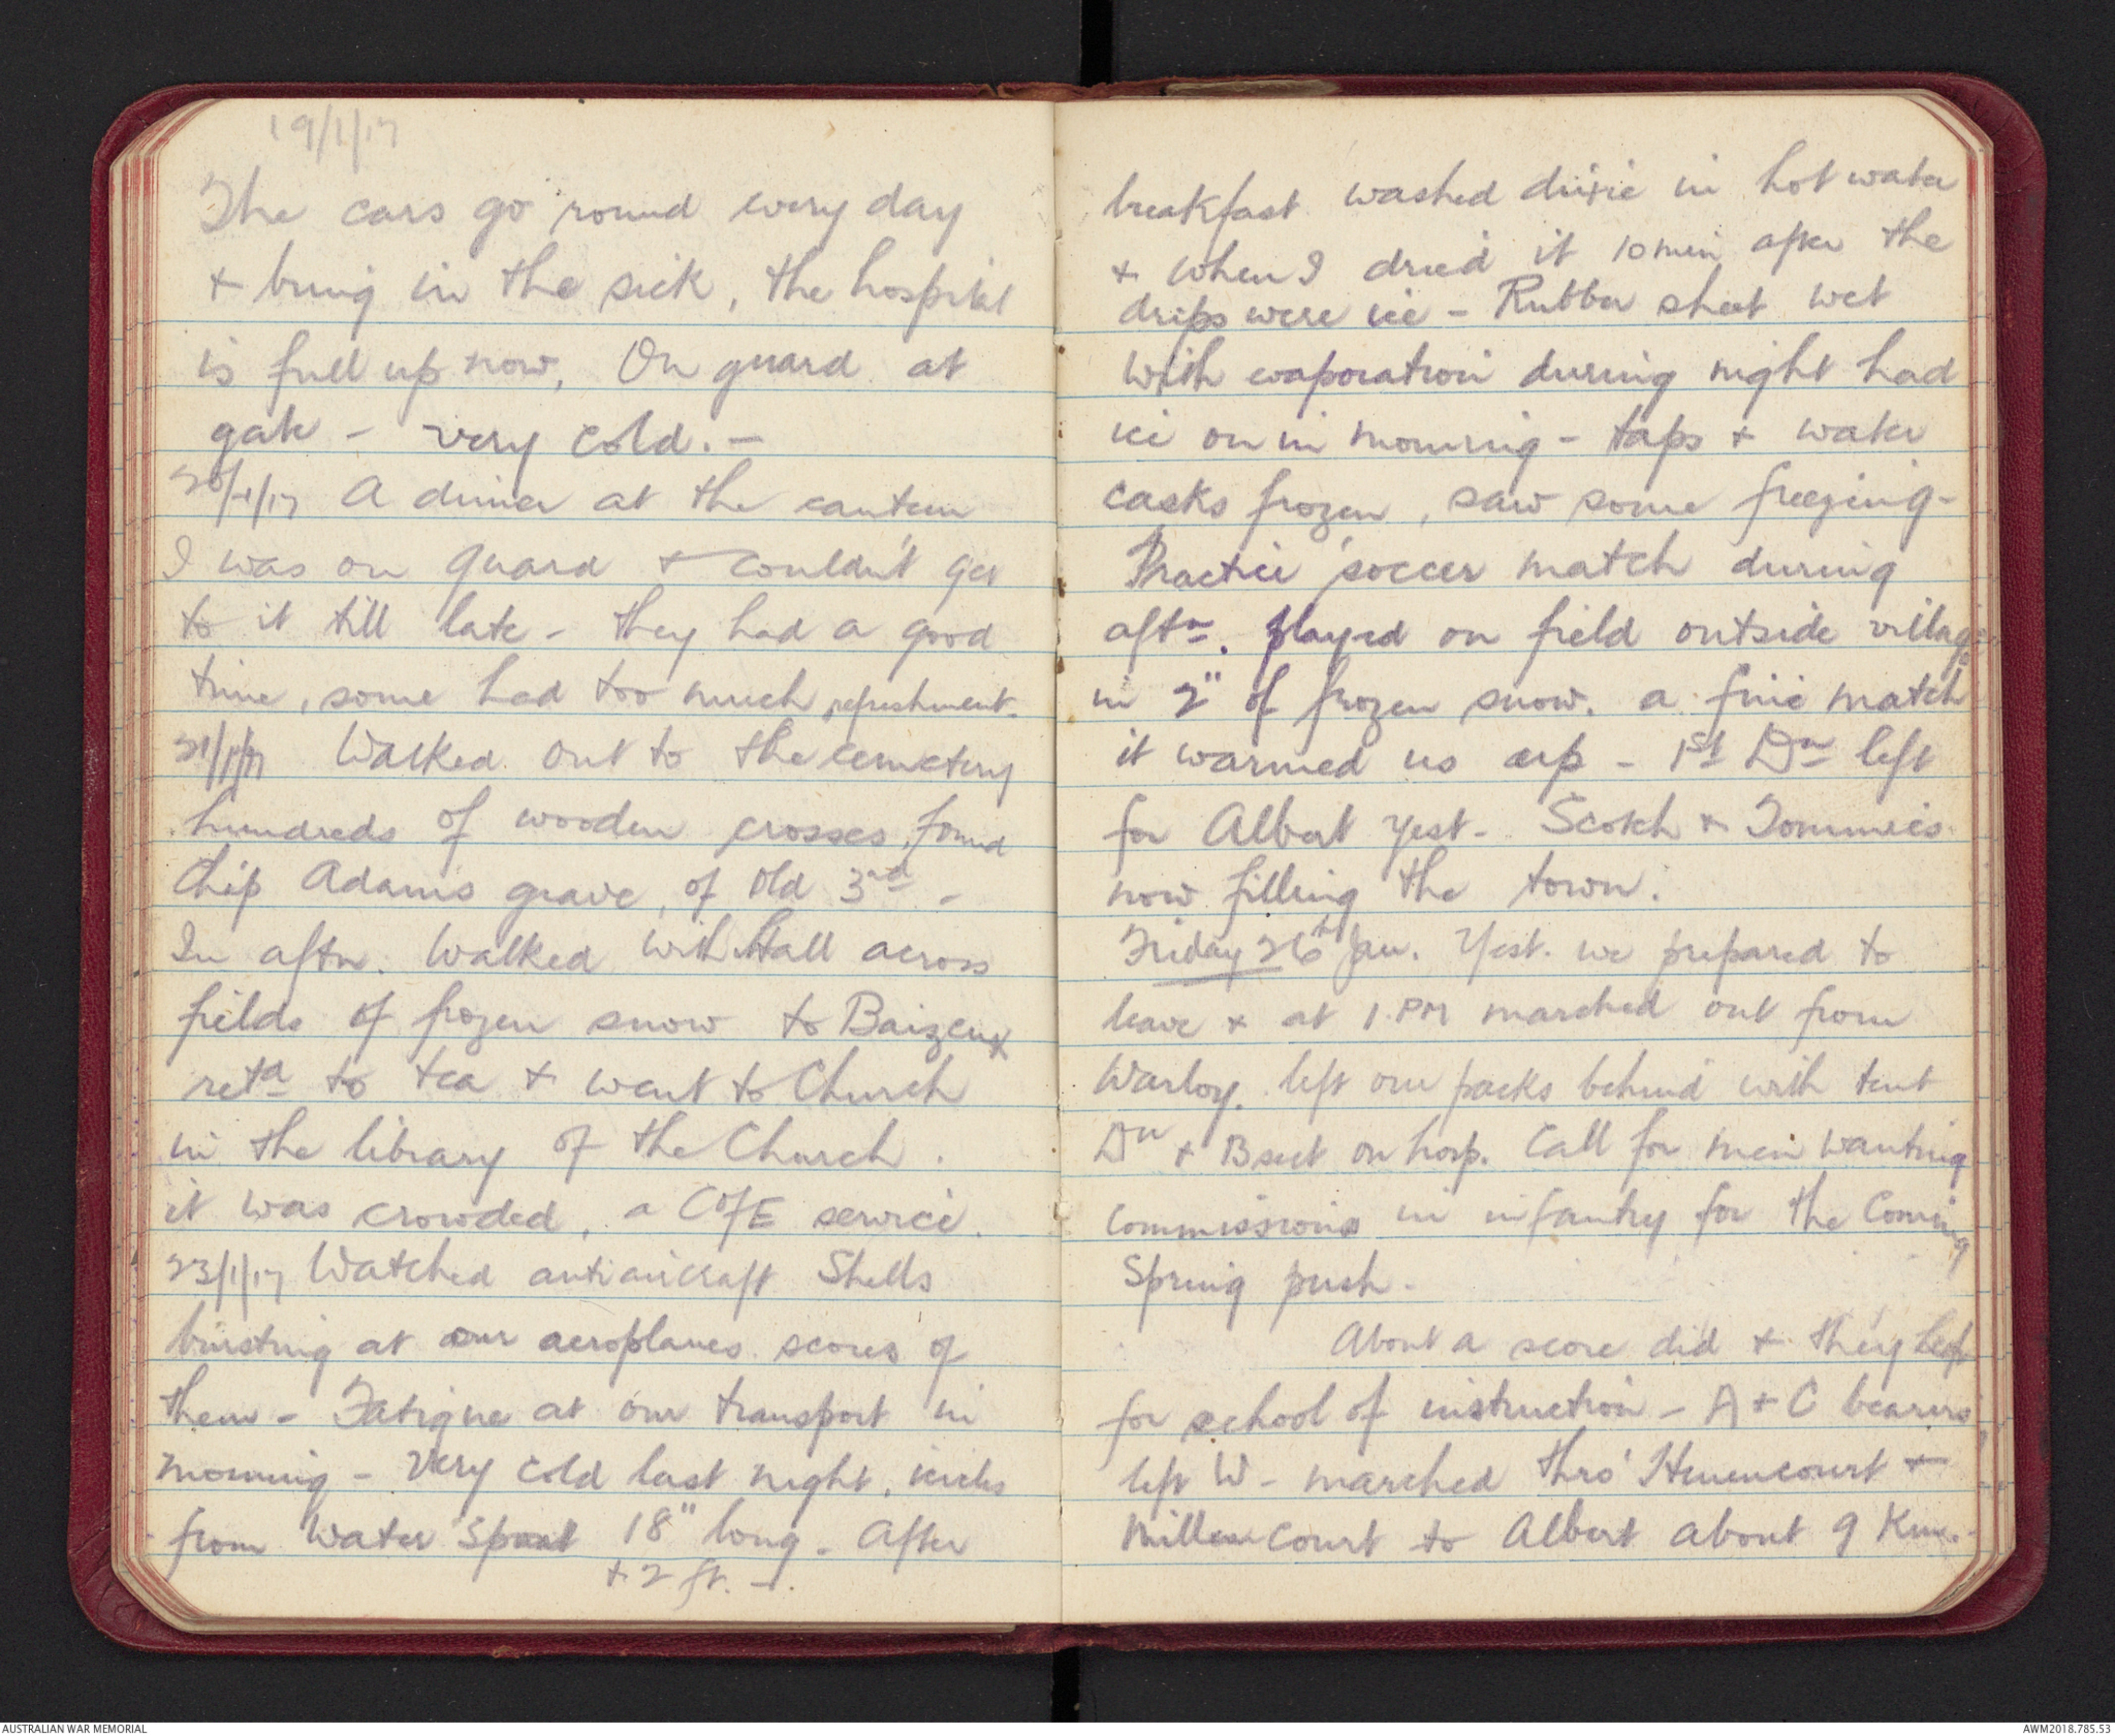 19/1/17
The cars go round every day
+ bring in the sick, the hospital
is full up now, On guard at
gate - very cold. -
20/1/17 A dinner at the canteen
I was on guard + couldn't get
to it till late - they had a good
time, some had too much refreshment.
21/1/17 Walked out to the cemetery
hundreds of wooden crosses, found
Chip Adams grave, of Old 3rd -
In aftn. Walked with Hall across
fields of frozen snow to Baizeux
retd to tea + went to Church
in the library of the Church.
it was crowded, a C of E service.
23/1/17 Watched antiaircraft Shells
bursting at our aeroplanes scores of
them - Fatigue at our transport in
morning - Very cold last night, icicles
from water spout 18" long. After
+ 2 ft. -.
breakfast washed dixie in hot water
+ when I dried it 10 min after the
drips were ice - Rubber sheet wet
with evaporation during night had
ice on in morning - taps + water
casks frozen, saw some freezing -
Practice soccer match during
aftn. played on field outside village
in 2" of frozen snow. a fine match
it warmed us up - 1st Dn left
for Albert yest - Scotch + Tommies
now filling the town.
Friday 26th Jan. Yest. we prepared to
leave + at 1. PM marched out from
Warloy. left our packs behind with tent
Dn + B sect on hosp. Call for men wanting
Commissions in infantry for the Coming
Spring push.
About a score did + they left
for school of instruction - A + C bearers
left W - marched thro' Henencourt +
Millencourt to Albert about 9 Km.
AUSTRALIAN WAR MEMORIAL
AWM2018.785.53